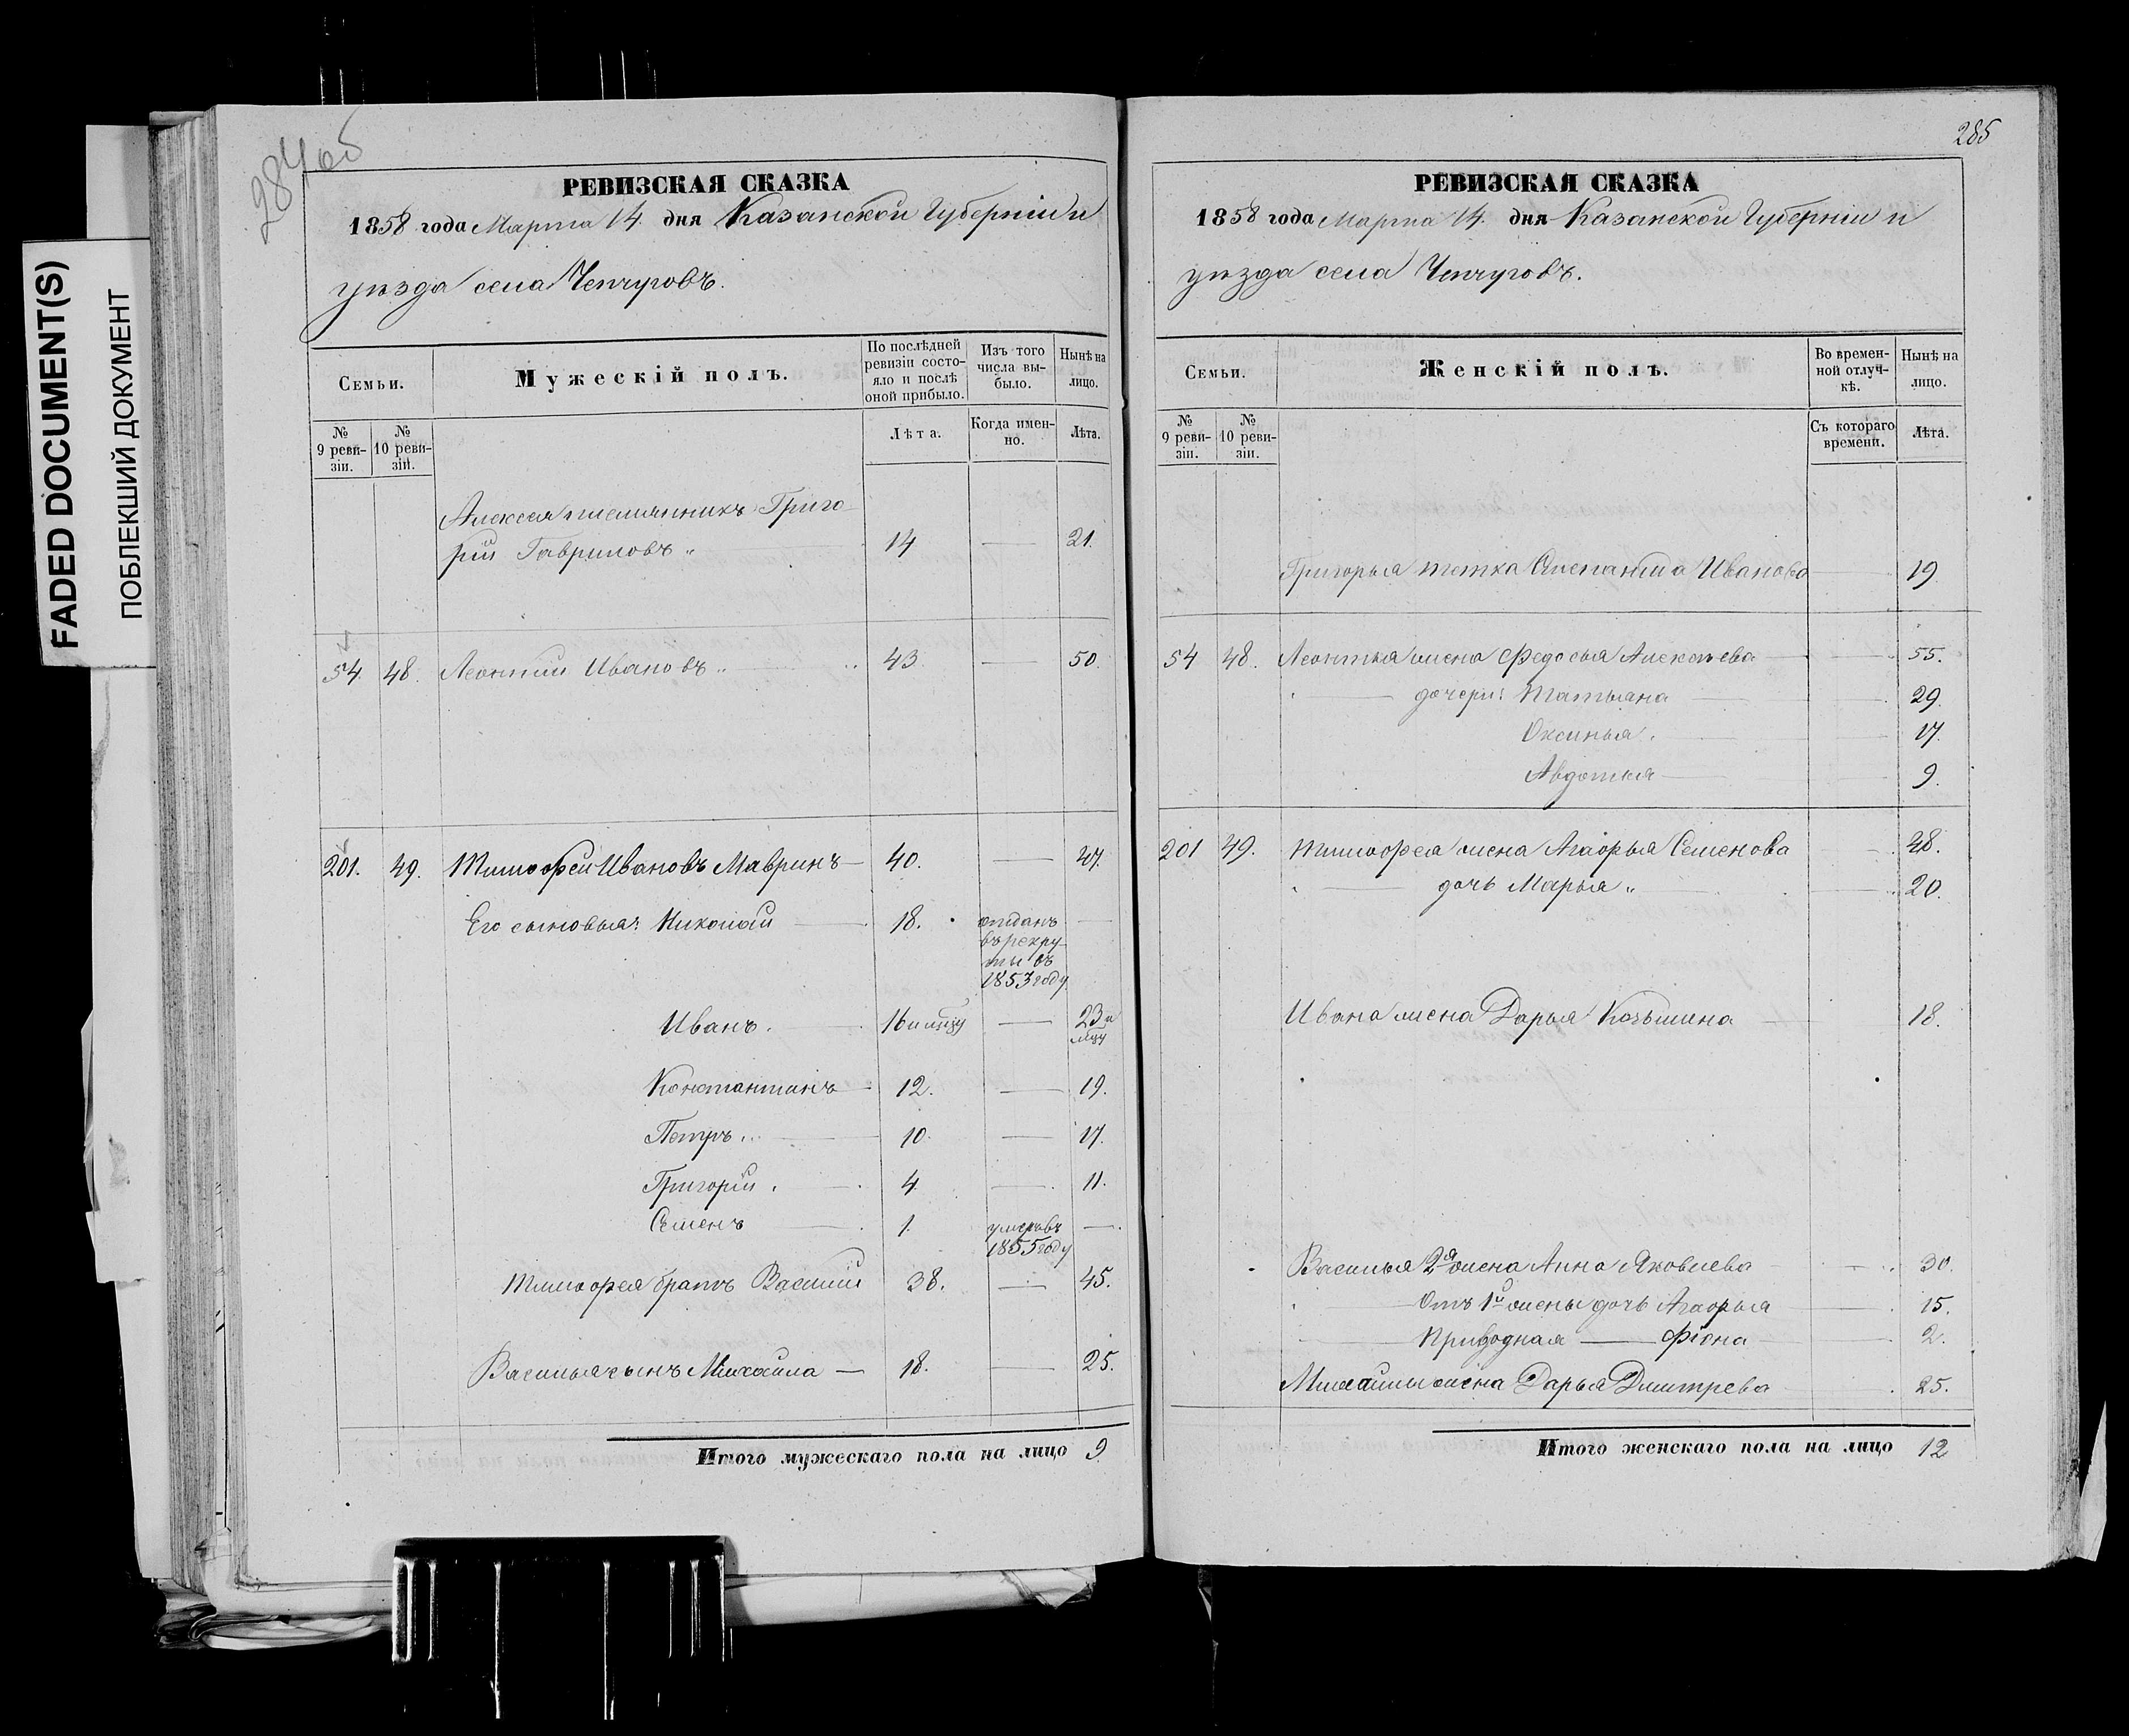 FADED DOCUMENT(S)
ПОБЛЕКШИЙ ДОКУМЕНТ
284об
РЕВИЗСКАЯ СКАЗКА
1858 года Марта 14. дня Казанской Губерніи и
уѣзда села Чепчуговъ.
Семьи.
Мужескій полъ.
По послѣдней ревизіи состояло и послѣ оной прибыло.
Изъ того числа выбыло.
Нынѣ на лицо.
№ 9 ревизіи.
№ 10 ревизіи.
Лѣта.
Когда именно.
Лѣта.
Алексея племянникъ Григо
рій Гавриловъ „ 14 — 21.
54. 48. Леонтий Ивановъ „ 43 — 50.
201. 49. Тимофей Ивановъ Мавринъ — 40. — 47.
Его сыновья: Николай — 18. отданъ —
въ рекру
ты въ
1853 году
Иванъ. 16 и мцу — 23 и
мцу
Константинъ — 12. — 19.
Петръ — 10. — 17.
Григорій — 4 — 11.
Семенъ — 1. умеръ въ —
1855 году
Тимофея братъ Василій 38. — 45.
Василья сынъ Михайла — 18. — 25.
Итого мужескаго пола на лицо 9
285
РЕВИЗСКАЯ СКАЗКА
1858 года Марта 14. дня Казанской Губерніи и
уѣзда села Чепчуговъ.
Семьи.
Женскій полъ.
Во временной отлучкѣ.
Нынѣ на лицо.
№ 9 ревизіи.
№ 10 ревизіи.
Съ котораго времени.
Лѣта.
Григорья тетка Степанида Иванова — 19
54 48. Леонтья жена Федосья Алексѣева — 55.
— дочери: Татьяна — 29.
Оксинья. — 17.
Авдотья — 9.
201 49. Тимофея жена Агафья Семенова — 48.
— дочь Марья „ — 20.
Ивана жена Дарья Козьмина — 18.
Василья 2я жена Анна Яковлева — 30.
— Отъ 1й жены дочь Агафья — 15.
— Приводная — Фіона — 2.
Михайлы жена Дарья Дмитрева — 25.
Итого женскаго пола на лицо 12